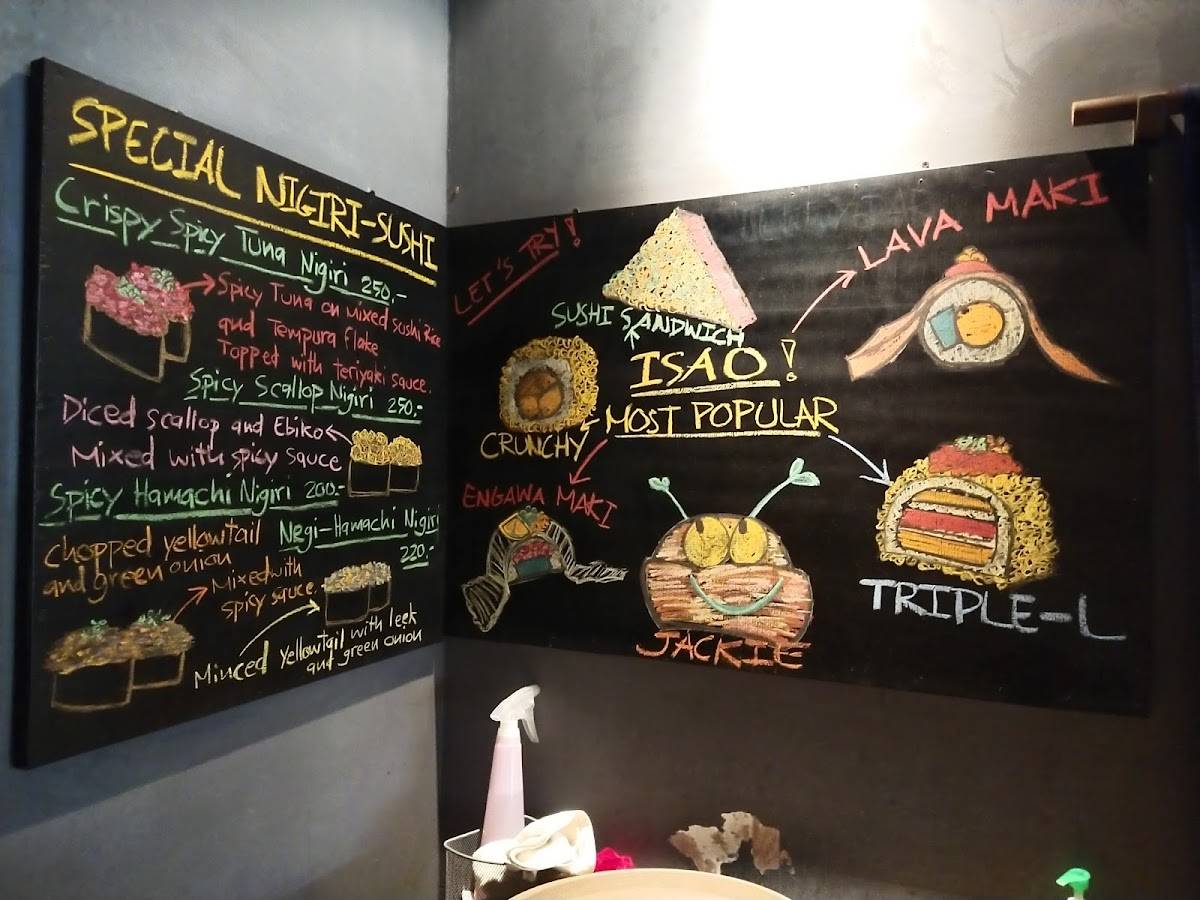 SPECIAL NIGIRI-SUSHI
Crispy Spicy Tuna Nigiri 250.-
Spicy Tuna on Mixed Sushi Rice
and Tempura Flake
Topped with teriyaki sauce.
Spicy Scallop Nigiri 250.-
Diced scallop and Ebiko
Mixed with spicy sauce
Spicy Hamachi Nigiri 200.-
chopped yellowtail
and green onion
Mixed with
spicy sauce.
Negi-Hamachi Nigiri
220.-
Minced Yellowtail with leek
and green onion
LET'S TRY!
SUSHI SANDWICH
LAVA MAKI
ISAO!
MOST POPULAR
CRUNCHY
ENGAWA MAKI
JACKIE
TRIPLE-L